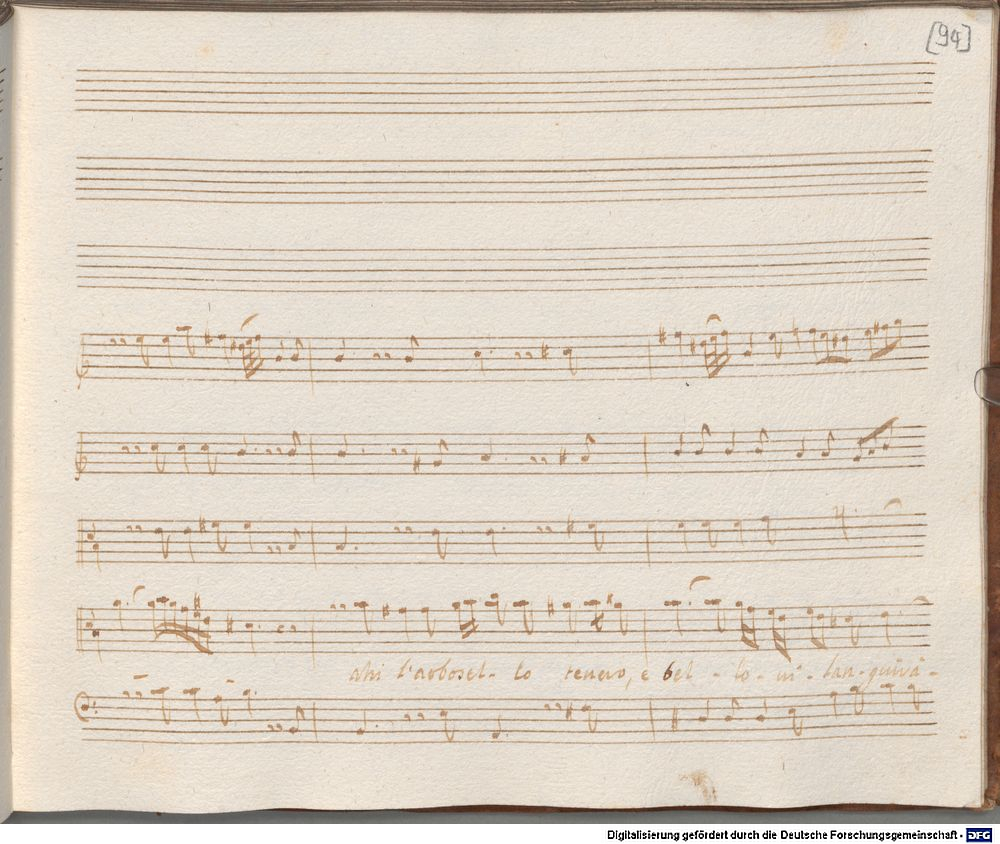 [94]
ahi l'arbosel- lo tenero, e bel - lo - vi - lan - guirà -
Digitalisierung gefördert durch die Deutsche Forschungsgemeinschaft - DFG